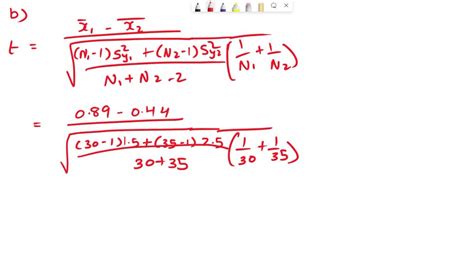 b)
t = x̄₁ - x̄₂ / √((N₁-1)S²y₁ + (N₂-1)S²y₂ / N₁ + N₂ - 2 (1/N₁ + 1/N₂))
= 0.89 - 0.44 / √((30-1)1.5 + (35-1)2.5 / 30+35 (1/30 + 1/35))